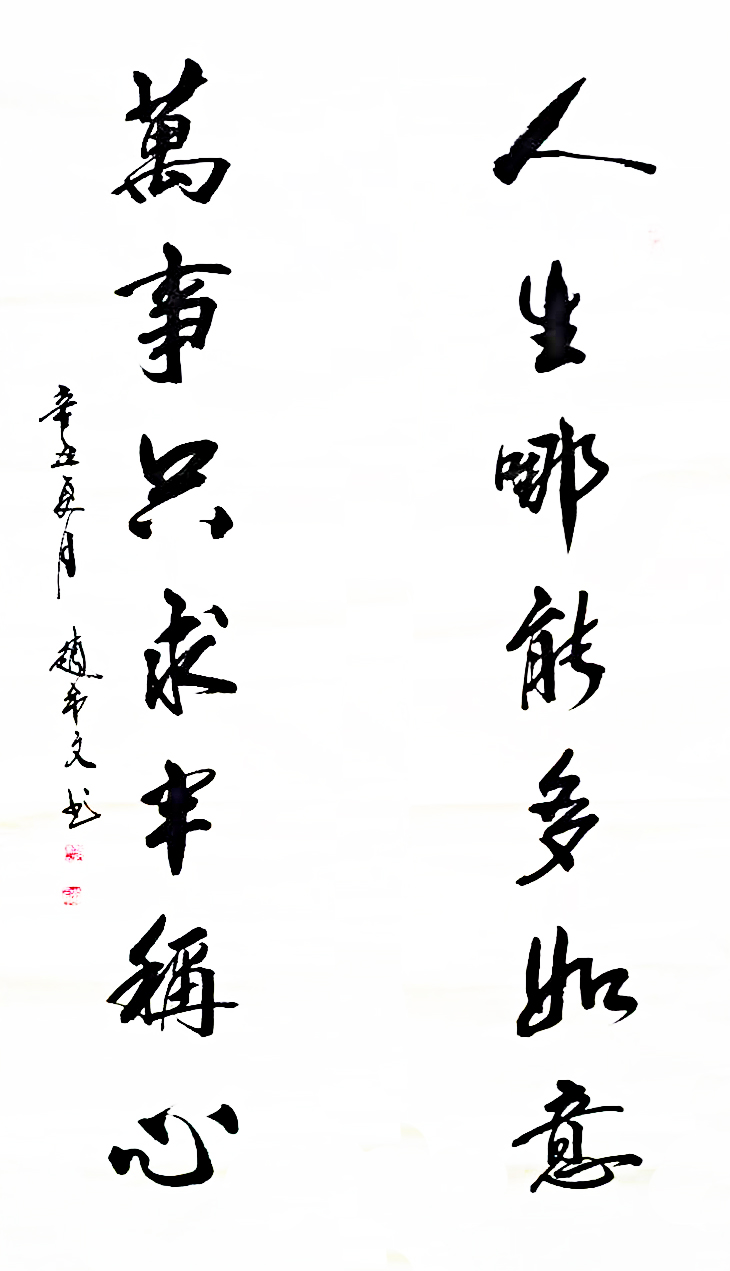 人生哪能多如意
萬事只求半稱心
辛丑夏月 趙希文书